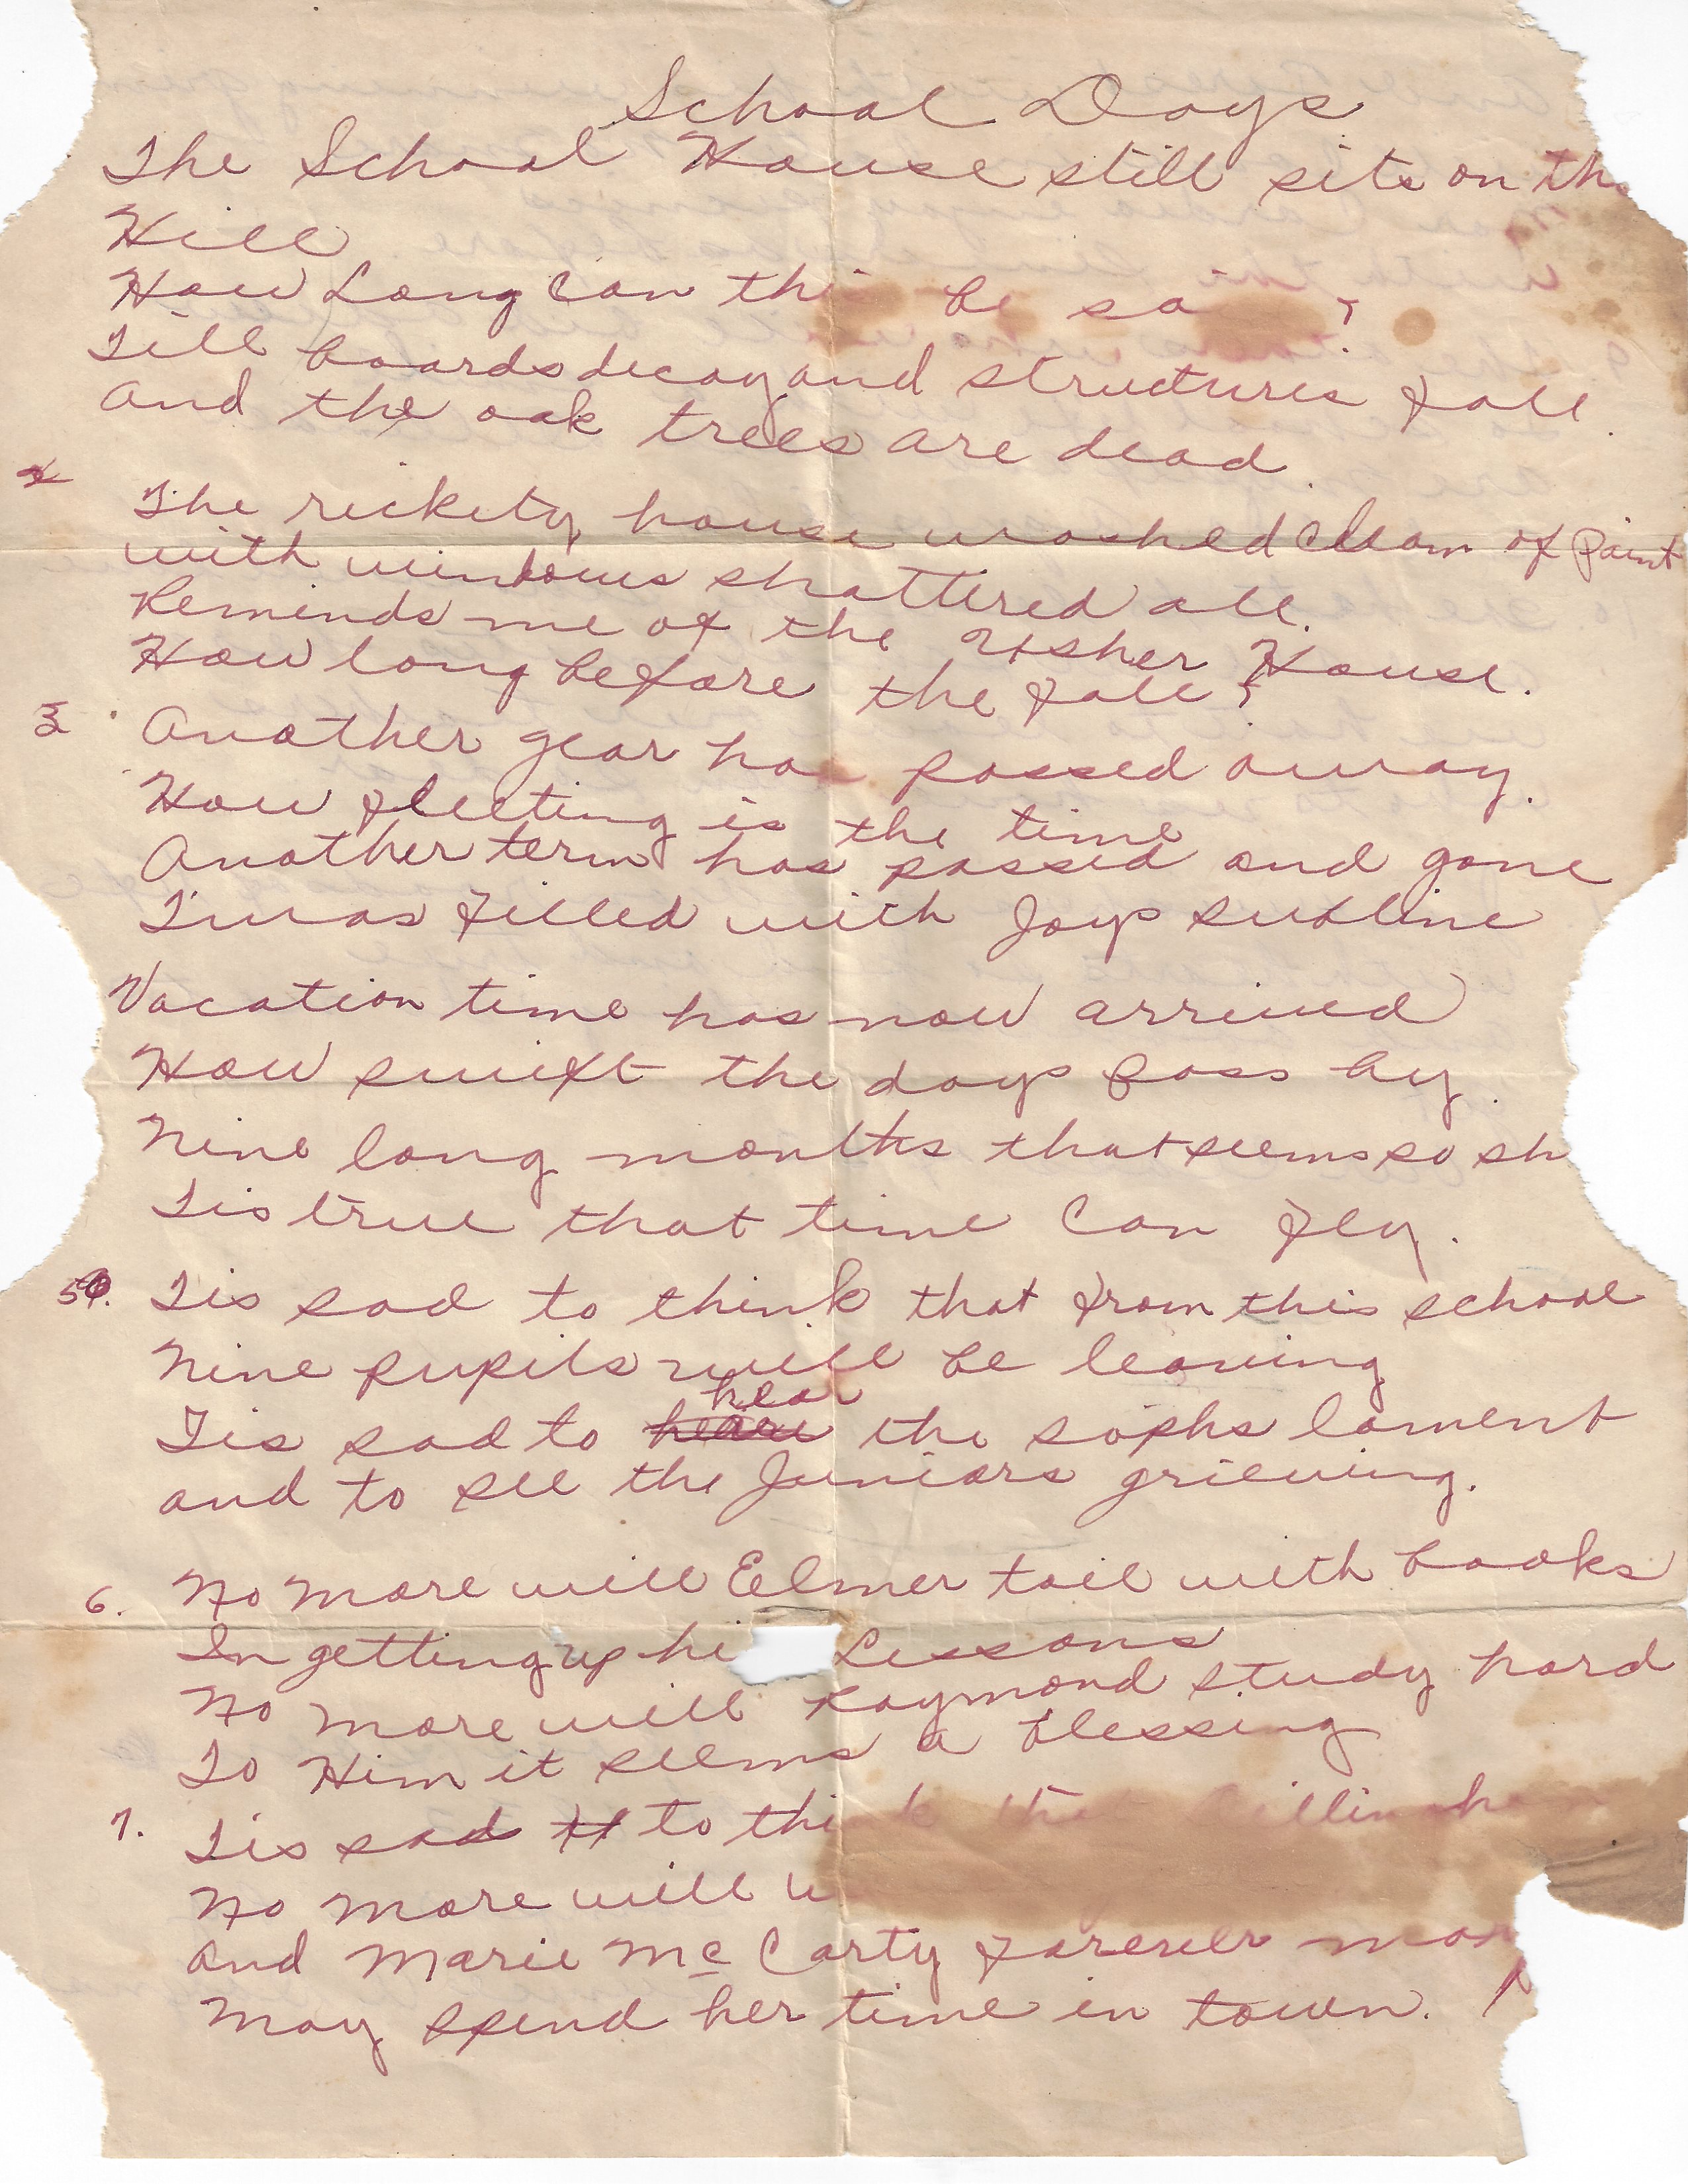 School Days
The School House still sits on the
Hill
How Long Can this be so ?
Till boards decay and structures fall.
And the oak trees are dead.
2
The rickety house washed clean of paint
with windows shattered all.
Reminds me of the Usher House.
How long before the fall?
3 Another year has passed away.
How fleeting is the time
Another term has passed and gone
T'was filled with Joys subline
Vacation time has now arrived
How swift the days pass by.
Nine long months that seems so sh
Tis true that time can fly.
5. Tis sad to think that from this school
Nine pupils will be leaving
hear
Tis sad to the sophs lament
and to see the Juniors grieving.
6. No more will Elmer toil with books
In getting up hi Lessons
No more will Raymond study hard
To Him it seems a blessing
7. Tis sad to think that
No more will
and Marie McCarty forever more
May spend her time in town.